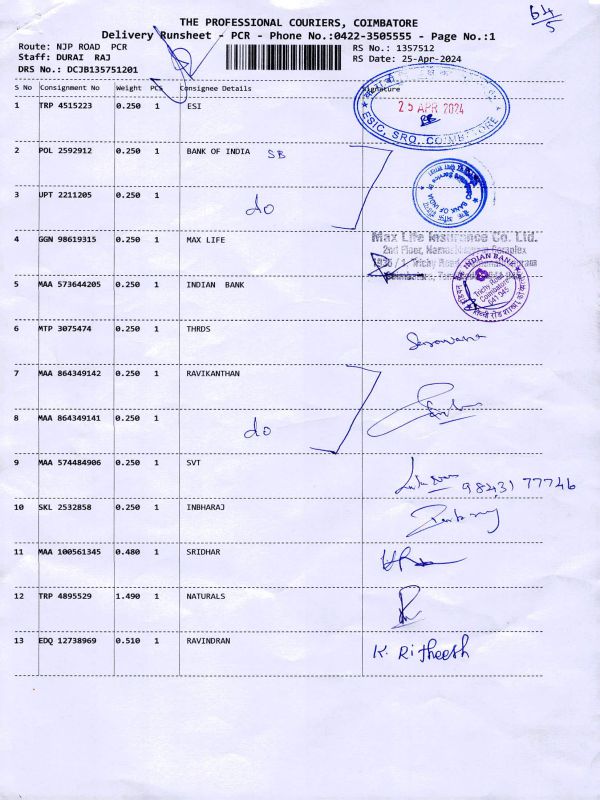 THE PROFESSIONAL COURIERS, COIMBATORE
Delivery Runsheet - PCR - Phone No.:0422-3505555 - Page No.:1
Route: NJP ROAD PCR
Staff: DURAI RAJ
DRS No.: DCJB135751201
RS No.: 1357512
RS Date: 25-Apr-2024
S No Consignment No Weight PCS Consignee Details Signature
1 TRP 4515223 0.250 1 ESI
25 APR 2024
ESIC, SRO, COIMBATORE
2 POL 2592912 0.250 1 BANK OF INDIA SB
3 UPT 2211205 0.250 1 do
BANK OF INDIA
4 GGN 98619315 0.250 1 MAX LIFE
Max Life Insurance Co. Ltd.
2nd Floor,
Trichy Road
5 MAA 573644205 0.250 1 INDIAN BANK
INDIAN BANK
Trichy Road
Coimbatore
641 045
6 MTP 3075474 0.250 1 THRDS
7 MAA 864349142 0.250 1 RAVIKANTHAN
8 MAA 864349141 0.250 1 do
9 MAA 574484906 0.250 1 SVT 98431 77746
10 SKL 2532858 0.250 1 INBHARAJ
11 MAA 100561345 0.480 1 SRIDHAR
12 TRP 4895529 1.490 1 NATURALS
13 EDQ 12738969 0.510 1 RAVINDRAN K. Ritheesh